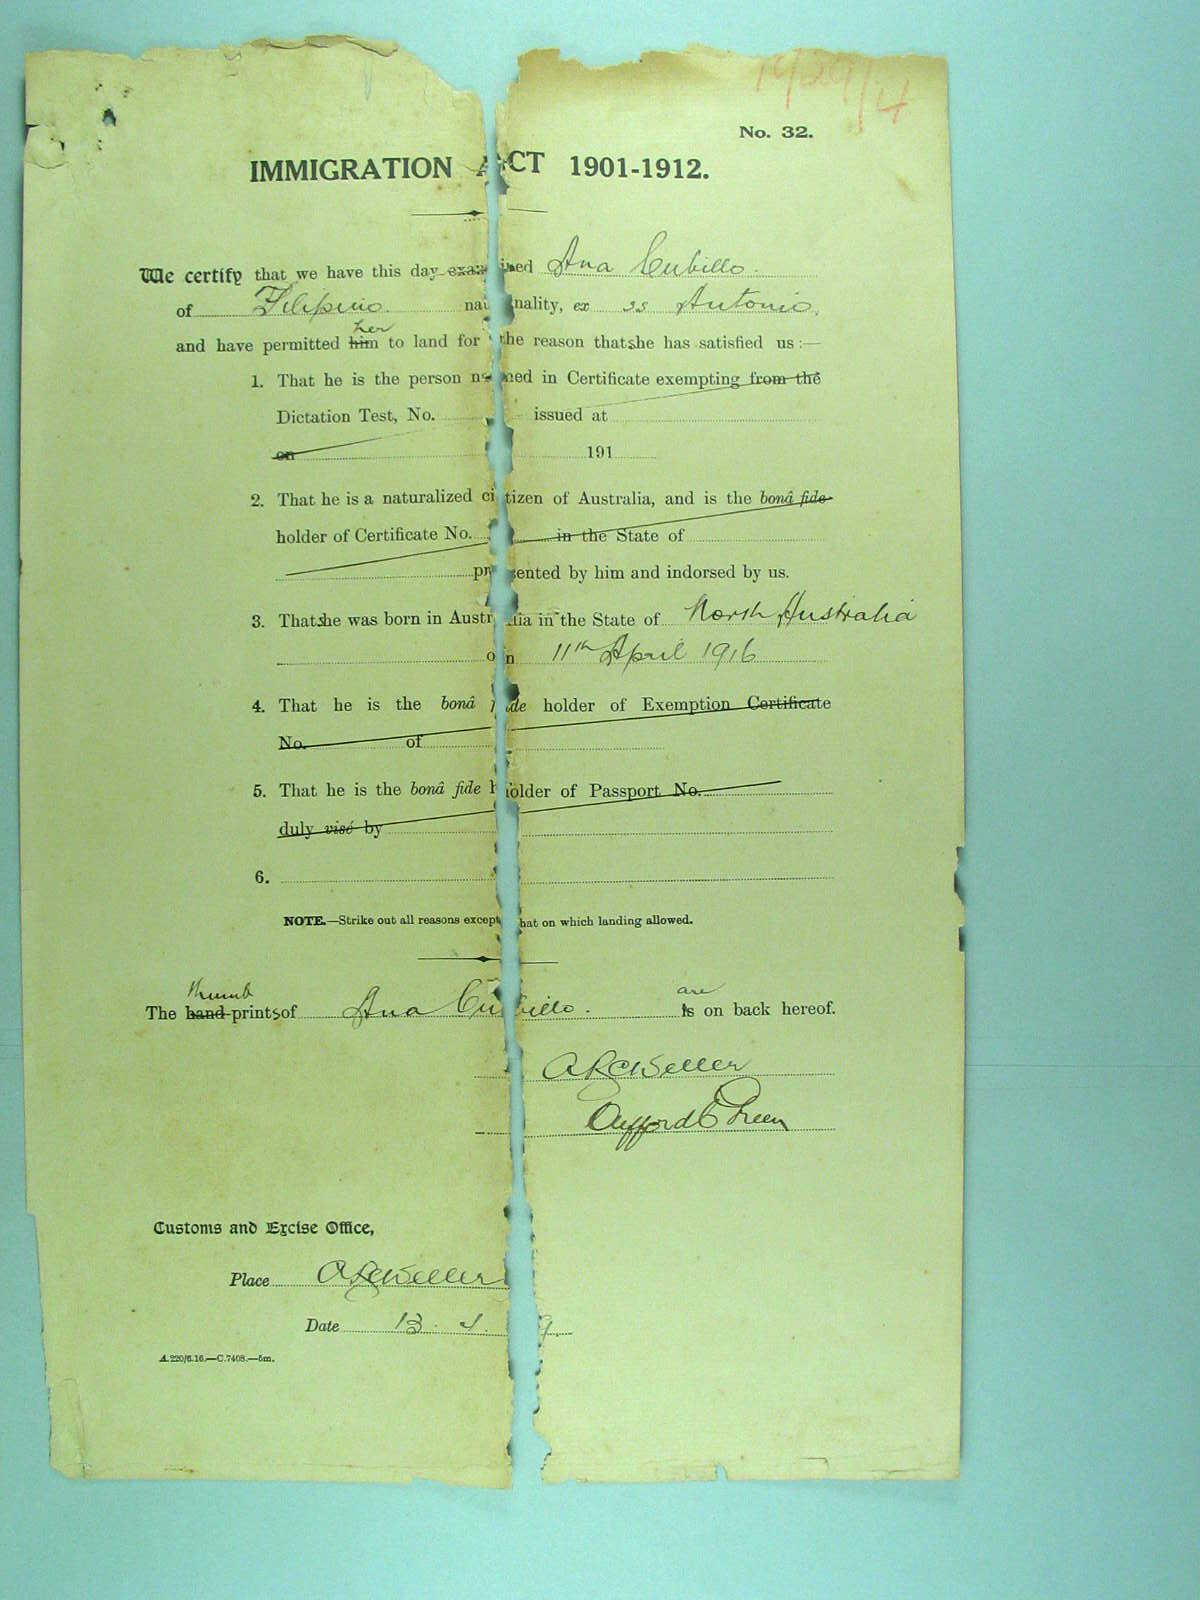 No. 32.
IMMIGRATION ACT 1901-1912.
We certify that we have this day examined Ana Cubillo.
of Filipino. nationality, ex ss Antonio.
her
and have permitted him to land for the reason that she has satisfied us :—
1. That he is the person named in Certificate exempting from the
Dictation Test, No. issued at
on 191
2. That he is a naturalized citizen of Australia, and is the bonâ fide
holder of Certificate No. in the State of
presented by him and indorsed by us.
3. That she was born in Australia in the State of North Australia
on 11th April 1916
4. That he is the bonâ fide holder of Exemption Certificate
No. of
5. That he is the bonâ fide holder of Passport No.
duly visé by
6.
NOTE.—Strike out all reasons except that on which landing allowed.
thumb are
The hand-prints of Ana Cubillo. is on back hereof.
Customs and Excise Office,
Place
Date 13. 4.
A.220/6.16.—C.7408.—5m.